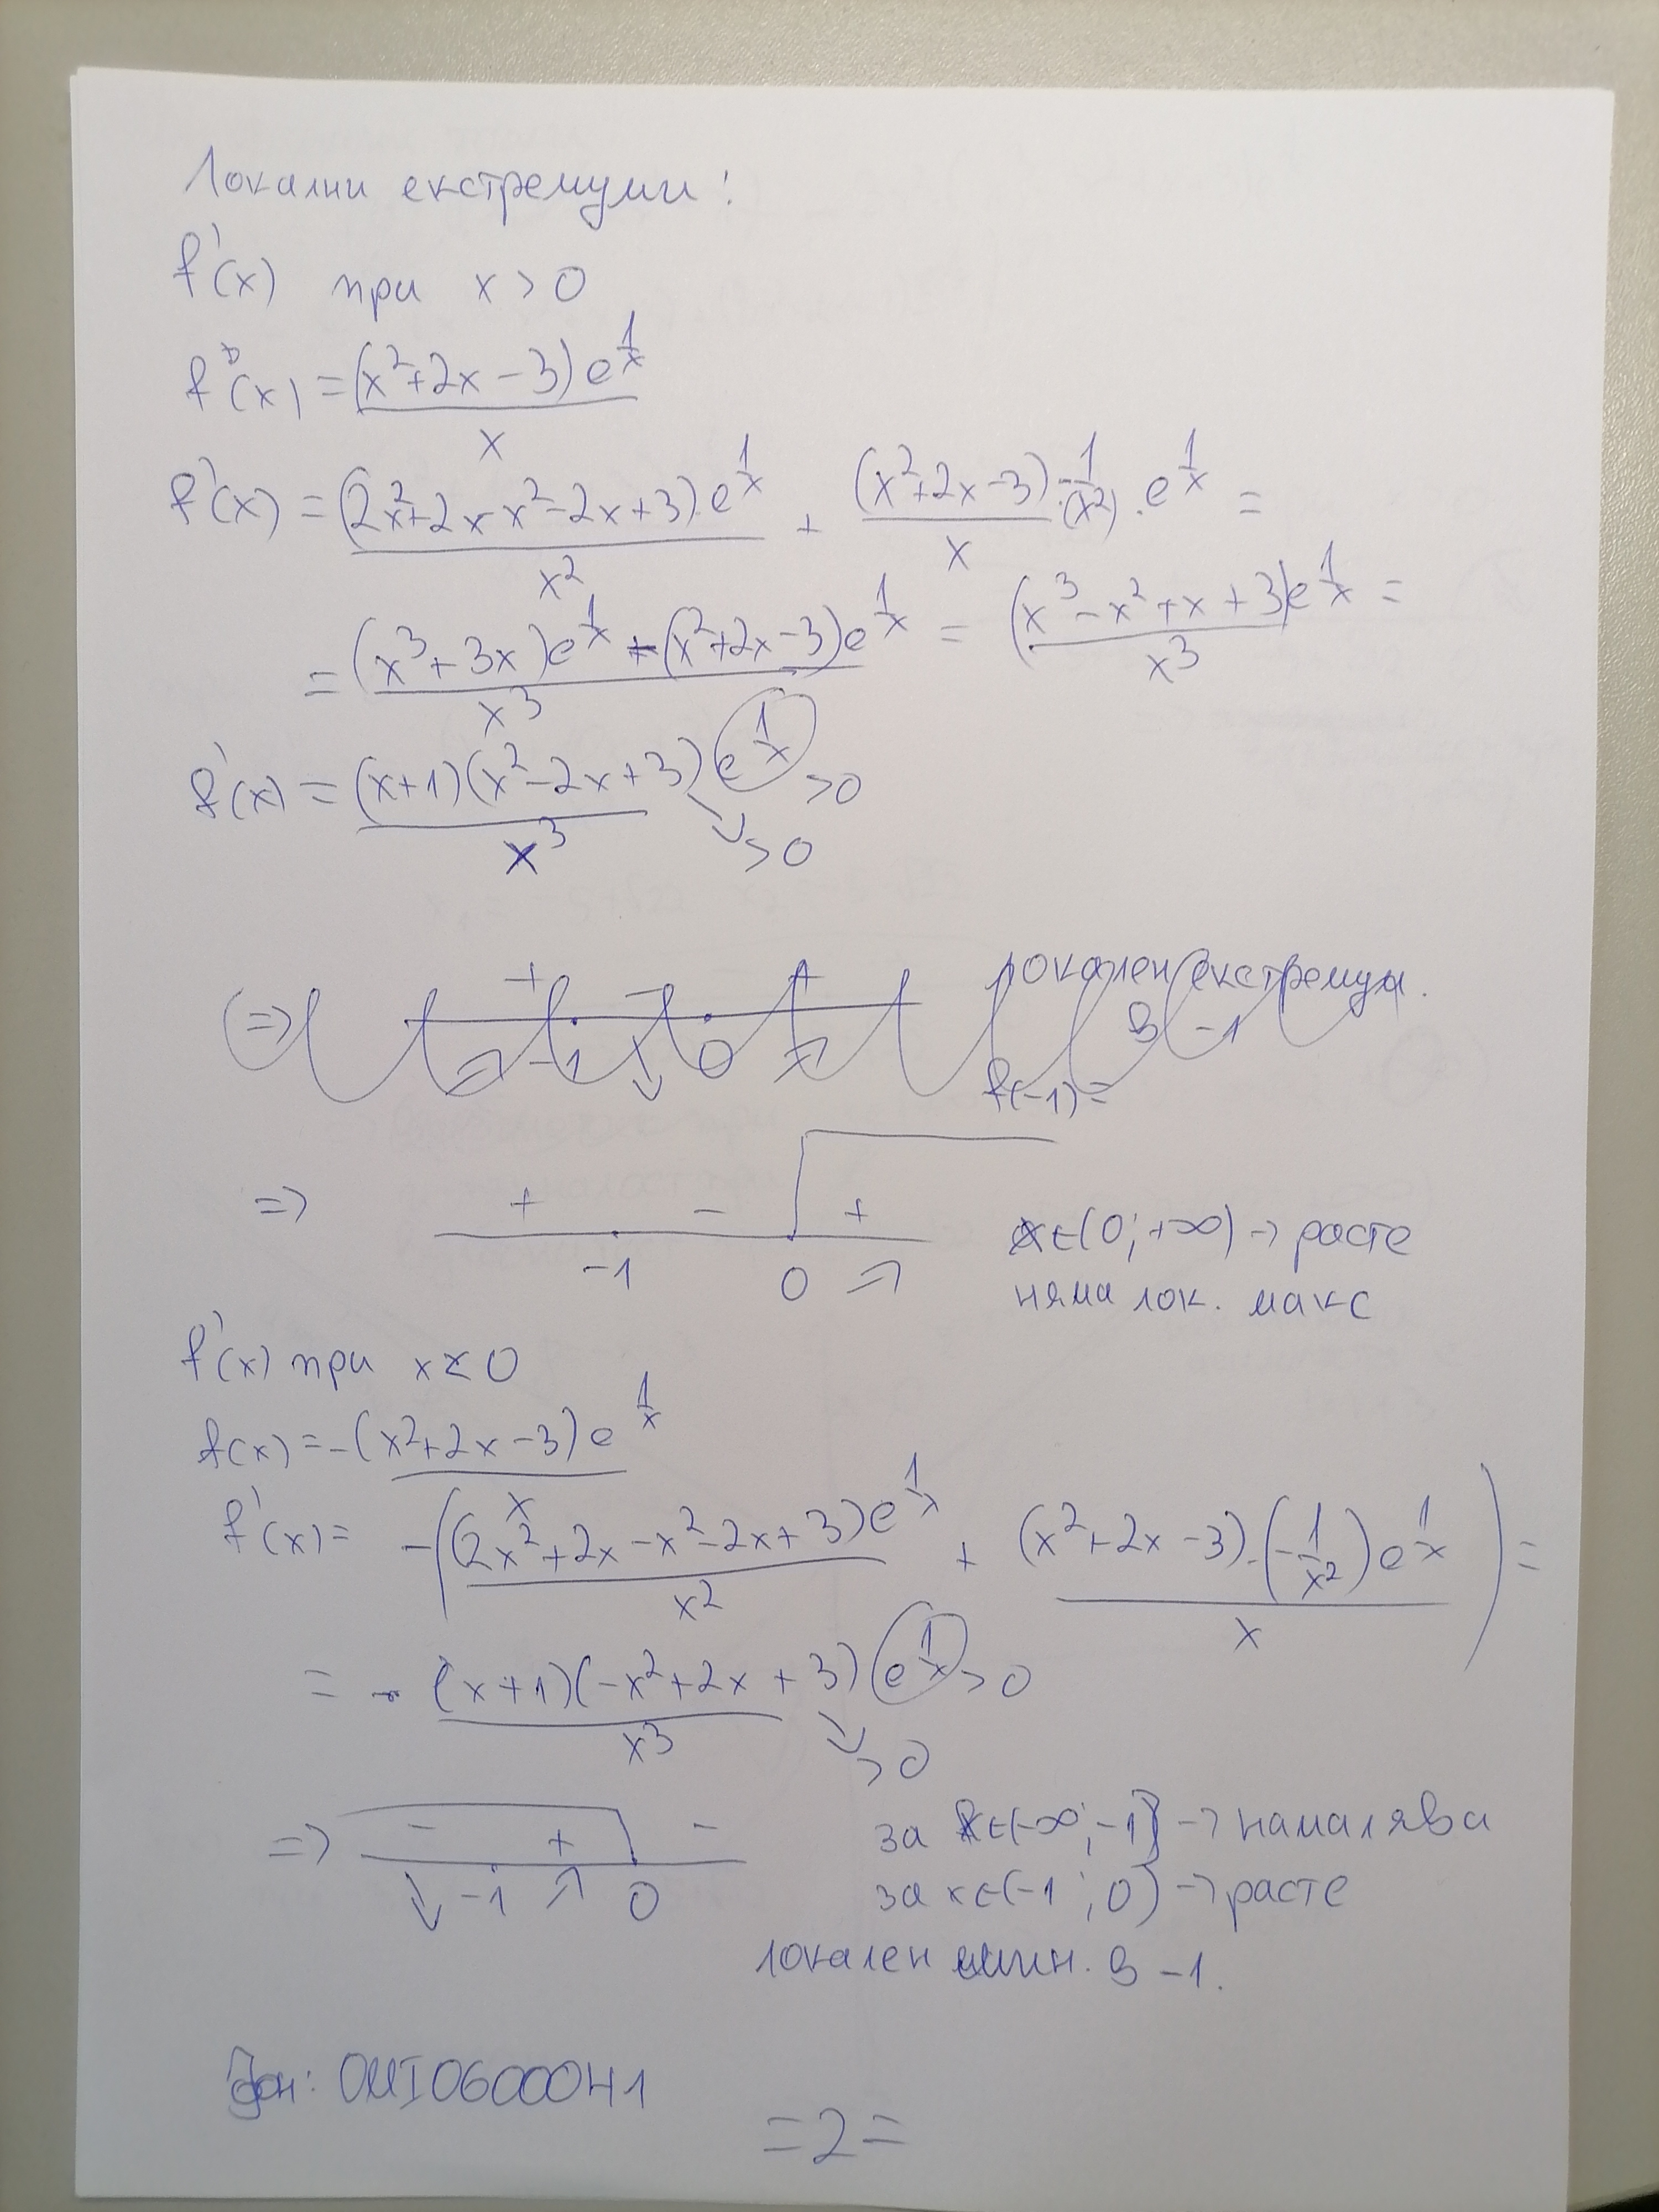 Локални екстремуми:
f'(x) при x > 0
f(x) = (x²+2x-3)e^(1/x) / x
f'(x) = (2x²+2x-x²-2x+3).e^(1/x) / x² + (x²+2x-3).-1/(x²).e^(1/x) / x =
= (x³+3x)e^(1/x) - (x²+2x-3)e^(1/x) / x³ = (x³-x²+x+3)e^(1/x) / x³ =
f'(x) = (x+1)(x²-2x+3)e^(1/x) / x³ >0
>0
(=> + - + локален екстремум.
-1 0 в -1
f(-1)=
=> + - +
-1 0 x∈(0;+∞) → расте
няма лок. макс
f'(x) при x<0
f(x) = -(x²+2x-3)e^(1/x) / x
f'(x) = -((2x²+2x-x²-2x+3)e^(1/x) / x² + (x²+2x-3).(-1/x²)e^(1/x) / x) =
= - (x+1)(-x²+2x+3)e^(1/x) / x³ >0
>0
=> - + - за x∈(-∞;-1) → намалява
-1 0 за x∈(-1;0) → расте
локален мин. в -1.
: 0MI0600041
=2=